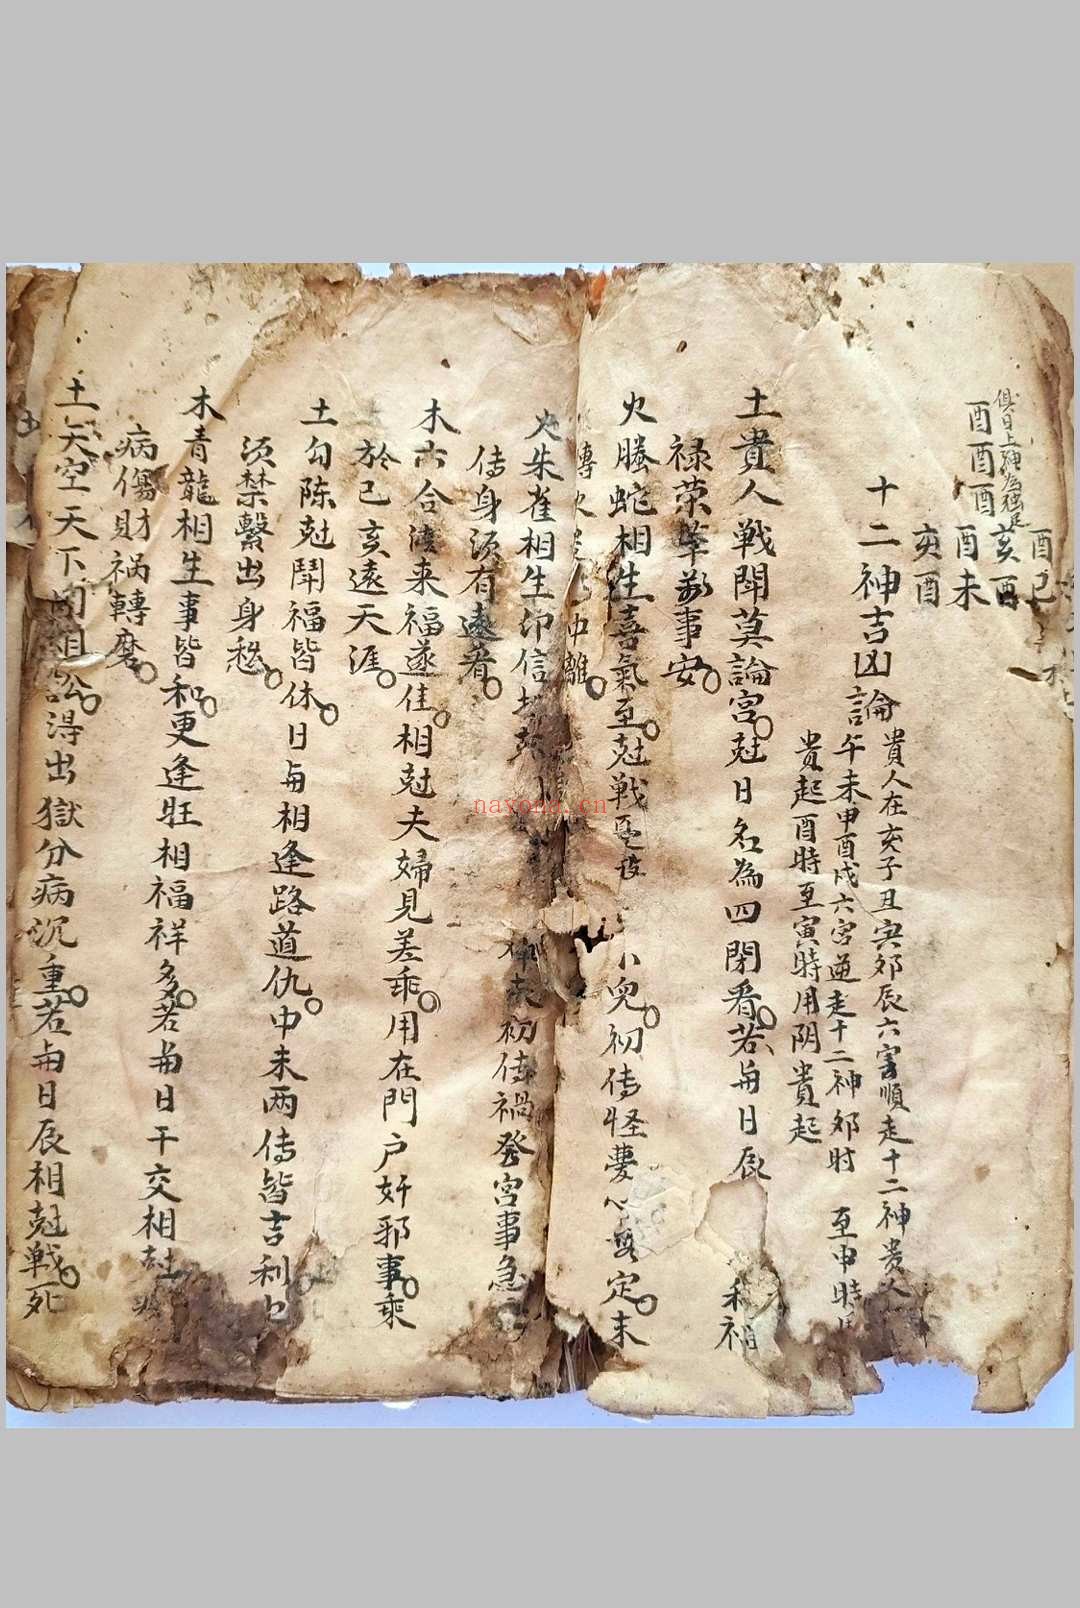 俱日上神為
酉巳
亥酉
酉酉酉 酉未
亥酉
十二神吉凶論
貴人在亥子丑寅邜辰六宫順走十二神貴人
午未申酉戌六宮逆走十二神邜时 至申時
貴起酉時至寅時用阴貴起
土貴人戰鬪莫論宮尅日名為四閉看若與日辰 相
禄荣華萬事安
火螣蛇相生喜氣至尅戰 小兒初传怪夢心 定末
傳火 中離
火朱雀相生印信 初传禍發宮事急
传身须有遠看
木六合 来福遂佳相尅夫婦見差乖用在門户奸邪事乘
於已亥遠天涯
土勾陈尅鬪福皆休日與相逢路道仇中末两传皆吉利
须禁繫出身愁
木青龍相生事皆和更逢旺相福祥多若與日干交相尅
病傷財祸轉磨
土天空天下 訟淂出獄分病沉重若與日辰相尅戰死
nayona.cn